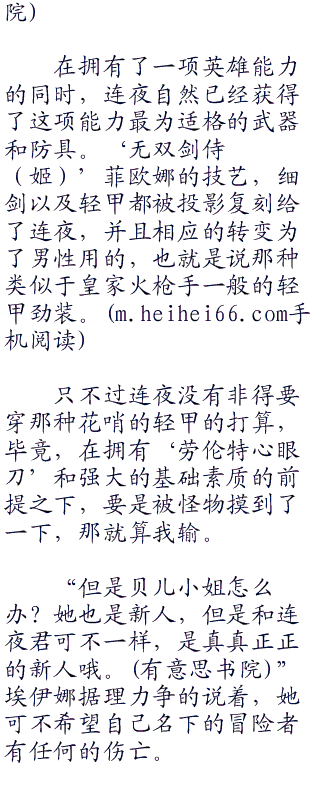 院)
在拥有了一项英雄能力
的同时，连夜自然已经获得
了这项能力最为适格的武器
和防具。‘无双剑侍
（姬）’菲欧娜的技艺，细
剑以及轻甲都被投影复刻给
了连夜，并且相应的转变为
了男性用的，也就是说那种
类似于皇家火枪手一般的轻
甲劲装。(m.heihei66.com手
机阅读)
只不过连夜没有非得要
穿那种花哨的轻甲的打算，
毕竟，在拥有‘劳伦特心眼
刀’和强大的基础素质的前
提之下，要是被怪物摸到了
一下，那就算我输。
“但是贝儿小姐怎么
办？她也是新人，但是和连
夜君可不一样，是真真正正
的新人哦。(有意思书院)”
埃伊娜据理力争的说着，她
可不希望自己名下的冒险者
有任何的伤亡。